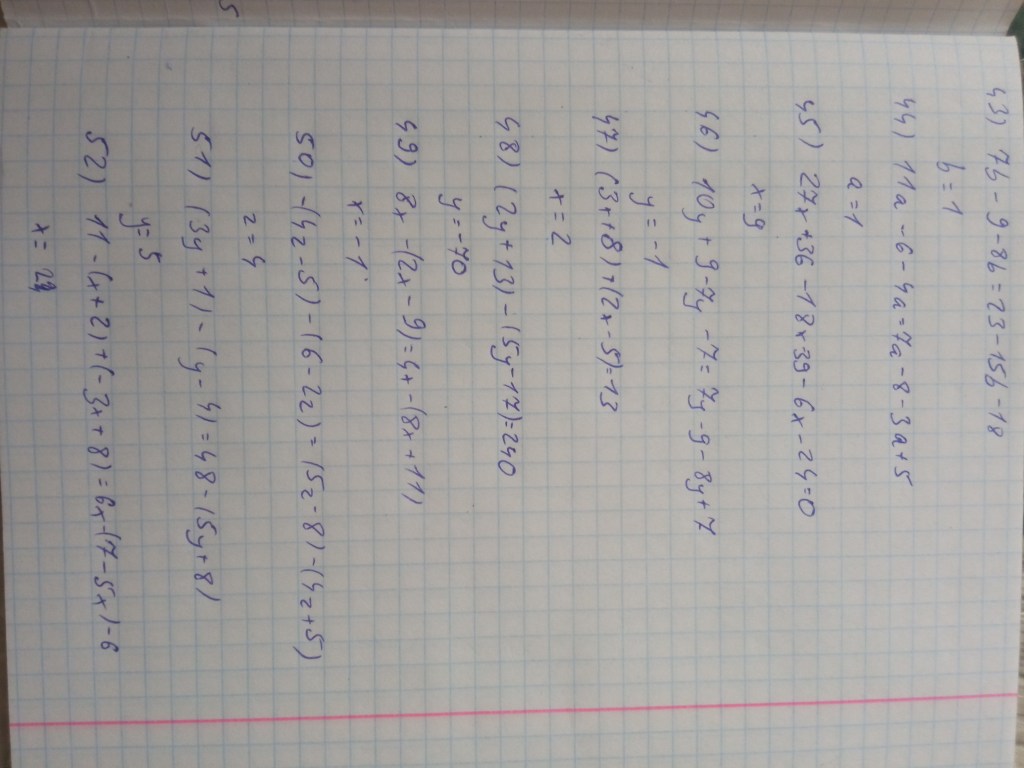 5
43) 7b - 9 - 8b = 23 - 15b - 18
b = 1
44) 11a - 6 - 4a = 7a - 8 - 3a + 5
a = 1
45) 27x + 36 - 18x39 - 6x - 24 = 0
x = 9
46) 10y + 9 - 7y - 7 = 7y - 9 - 8y + 7
y = -1
47) (3x + 8) + (2x - 5) = 13
x = 2
48) (2y + 13) - (5y - 17) = 240
y = -70
49) 8x - (2x - 9) = 4x - (8x + 11)
x = -1
50) -(4z - 5) - (6 - 2z) = (5z - 8) - (4z + 5)
z = 4
51) (3y + 1) - (y - 4) = 48 - (5y + 8)
y = 5
52) 11 - (x + 2) + (-3x + 8) = 6x - (7 - 5x) - 6
x =